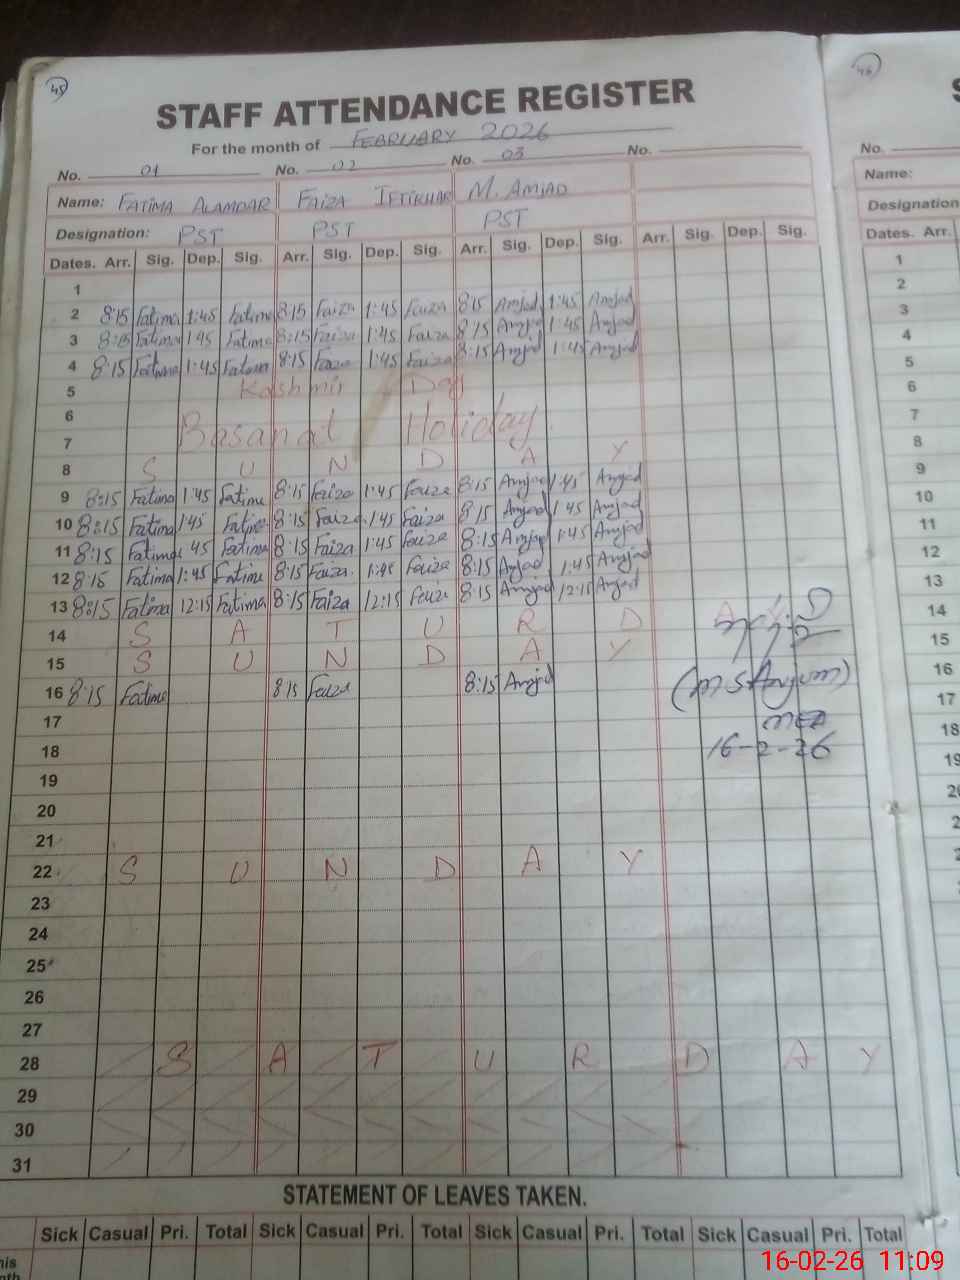 45
STAFF ATTENDANCE REGISTER
For the month of FEBRUARY 2026
No. 01 No. 02 No. 03 No.
Name: FATIMA ALAMDAR FAIZA IFTIKHAR M. AMJAD
Designation: PST PST PST
Dates. Arr. Sig. Dep. Sig. Arr. Sig. Dep. Sig. Arr. Sig. Dep. Sig. Arr. Sig. Dep. Sig.
1
2 8:15 Fatima 1:45 Fatima 8:15 Faiza 1:45 Faiza 8:15 Amjad 1:45 Amjad
3 8:15 Fatima 1:45 Fatima 8:15 Faiza 1:45 Faiza 8:15 Amjad 1:45 Amjad
4 8:15 Fatima 1:45 Fatima 8:15 Faiza 1:45 Faiza 8:15 Amjad 1:45 Amjad
5 Kashmir Day
6
7 Basanat Holiday
8 S U N D A Y
9 8:15 Fatima 1:45 Fatima 8:15 Faiza 1:45 Faiza 8:15 Amjad 1:45 Amjad
10 8:15 Fatima 1:45 Fatima 8:15 Faiza 1:45 Faiza 8:15 Amjad 1:45 Amjad
11 8:15 Fatima 45 Fatima 8:15 Faiza 1:45 Faiza 8:15 Amjad 1:45 Amjad
12 8:15 Fatima 1:45 Fatima 8:15 Faiza 1:45 Faiza 8:15 Amjad 1:45 Amjad
13 8:15 Fatima 12:15 Fatima 8:15 Faiza 12:15 Faiza 8:15 Amjad 12:15 Amjad
14 S A T U R D A Y
15 S U N D A Y
16 8:15 Fatima 8:15 Faiza 8:15 Amjad
17
18
16-2-26
19
20
21
22 S U N D A Y
23
24
25
26
27
28 S A T U R D A Y
29
30
31
STATEMENT OF LEAVES TAKEN.
Sick Casual Pri. Total Sick Casual Pri. Total Sick Casual Pri. Total Sick Casual Pri. Total
46
No.
Name:
Designation
Dates. Arr.
1
2
3
4
5
6
7
8
9
10
11
12
13
14
15
16
17
18
19
16-02-26 11:09